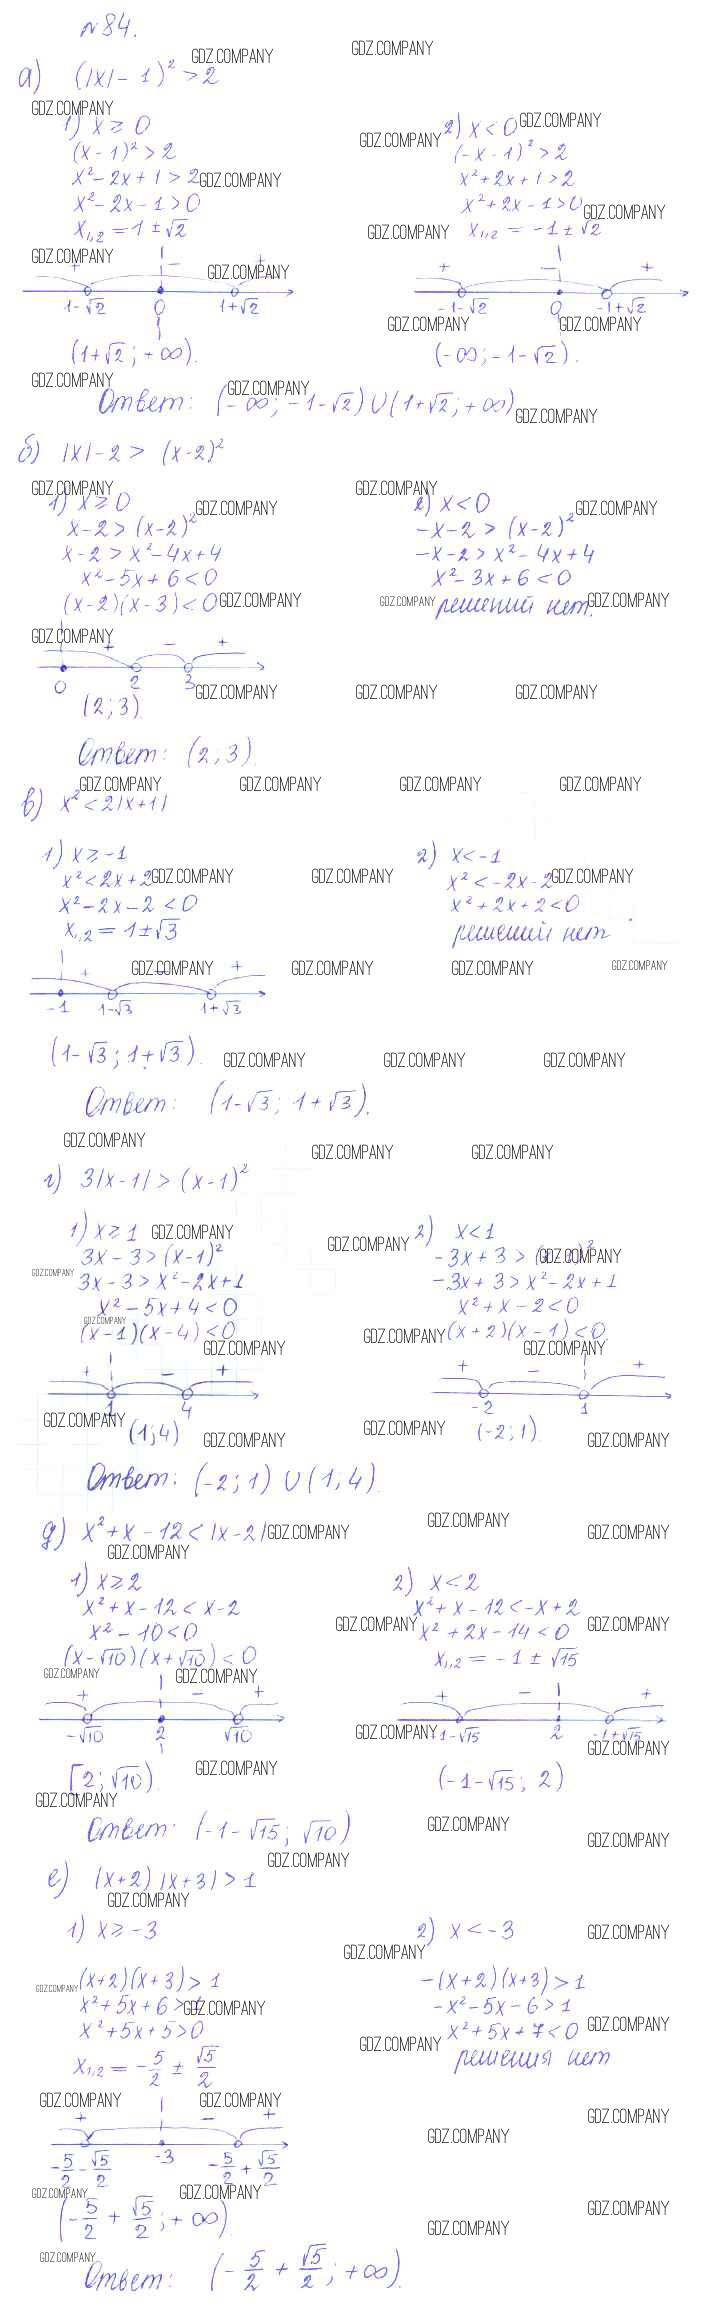 №84.
а) (|x| - 1)² > 2
1) x ≥ 0
(x - 1)² > 2
x² - 2x + 1 > 2
x² - 2x - 1 > 0
x₁,₂ = 1 ± √2
+ - +
1-√2 0 1+√2
(1+√2; +∞).
2) x < 0
(-x - 1)² > 2
x² + 2x + 1 > 2
x² + 2x - 1 > 0
x₁,₂ = -1 ± √2
+ - +
-1-√2 0 -1+√2
(-∞; -1-√2).
Ответ: (-∞; -1-√2) ∪ (1+√2; +∞)
б) |x| - 2 > (x-2)²
1) x ≥ 0
x - 2 > (x-2)²
x - 2 > x² - 4x + 4
x² - 5x + 6 < 0
(x-2)(x-3) < 0
+ - +
0 2 3
(2; 3).
2) x < 0
-x - 2 > (x-2)²
-x - 2 > x² - 4x + 4
x² - 3x + 6 < 0
решений нет.
Ответ: (2; 3).
в) x² < 2|x+1|
1) x ≥ -1
x² < 2x + 2
x² - 2x - 2 < 0
x₁,₂ = 1 ± √3
+ - +
-1 1-√3 1+√3
(1-√3; 1+√3).
2) x < -1
x² < -2x - 2
x² + 2x + 2 < 0
решений нет
Ответ: (1-√3; 1+√3).
г) 3|x-1| > (x-1)²
1) x ≥ 1
3x - 3 > (x-1)²
3x - 3 > x² - 2x + 1
x² - 5x + 4 < 0
(x-1)(x-4) < 0
+ - +
1 4
(1; 4)
2) x < 1
-3x + 3 > (x-1)²
-3x + 3 > x² - 2x + 1
x² + x - 2 < 0
(x+2)(x-1) < 0
+ - +
-2 1
(-2; 1).
Ответ: (-2; 1) ∪ (1, 4).
д) x² + x - 12 < |x-2|
1) x ≥ 2
x² + x - 12 < x - 2
x² - 10 < 0
(x-√10)(x+√10) < 0
+ - +
-√10 2 √10
[2; √10).
2) x < 2
x² + x - 12 < -x + 2
x² + 2x - 14 < 0
x₁,₂ = -1 ± √15
+ - +
-1-√15 2 -1+√15
(-1-√15; 2)
Ответ: (-1-√15; √10)
е) (x+2)|x+3| > 1
1) x ≥ -3
(x+2)(x+3) > 1
x² + 5x + 6 > 1
x² + 5x + 5 > 0
x₁,₂ = -5/2 ± √5/2
+ - +
-5/2 - √5/2 -3 -5/2 + √5/2
(-5/2 + √5/2; +∞).
2) x < -3
-(x+2)(x+3) > 1
-x² - 5x - 6 > 1
x² + 5x + 7 < 0
решения нет
Ответ: (-5/2 + √5/2; +∞).
GDZ.COMPANY